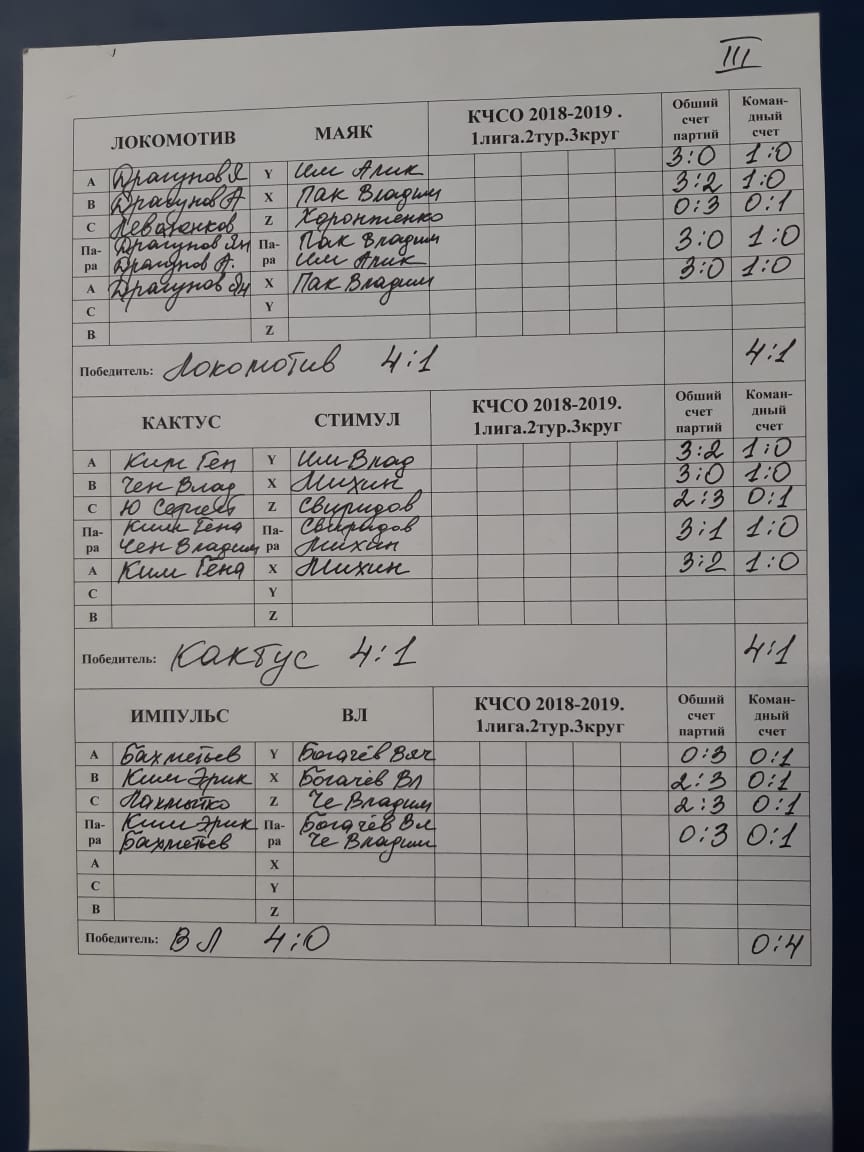 III
ЛОКОМОТИВ МАЯК КЧСО 2018-2019 . 1лига.2тур.3круг Обший счет партий Коман-дный счет
A Драгунов Я Y Им Алик 3:0 1:0
B Драгунов А X Пак Владим 3:2 1:0
C Левазенков Z Харонтенко 0:3 0:1
Па-ра Драгунов Ян Па-ра Пак Владим 3:0 1:0
Драгунов А. Им Алик
A Драгунов Ян X Пак Владим 3:0 1:0
C Y
B Z
Победитель: Локомотив 4:1 4:1
КАКТУС СТИМУЛ КЧСО 2018-2019. 1лига.2тур.3круг Обший счет партий Коман-дный счет
A Ким Ген Y Им Влад 3:2 1:0
B Чен Влад X Михин 3:0 1:0
C Ю Сергей Z Свиридов 2:3 0:1
Па-ра Ким Гена Па-ра Свиридов 3:1 1:0
Чен Владим Михин
A Ким Гена X Михин 3:2 1:0
C Y
B Z
Победитель: Кактус 4:1 4:1
ИМПУЛЬС ВЛ КЧСО 2018-2019. 1лига.2тур.3круг Обший счет партий Коман-дный счет
A Бахметьев Y Богачёв Вяч 0:3 0:1
B Ким Эрик X Богачёв Вл 2:3 0:1
C Пахмытко Z Че Владим 2:3 0:1
Па-ра Ким Эрик Па-ра Богачёв Вл 0:3 0:1
Бахметьев Че Владим
A X
C Y
B Z
Победитель: ВЛ 4:0 0:4